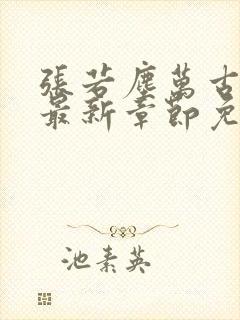 張若塵萬古
最新章節免
池素英